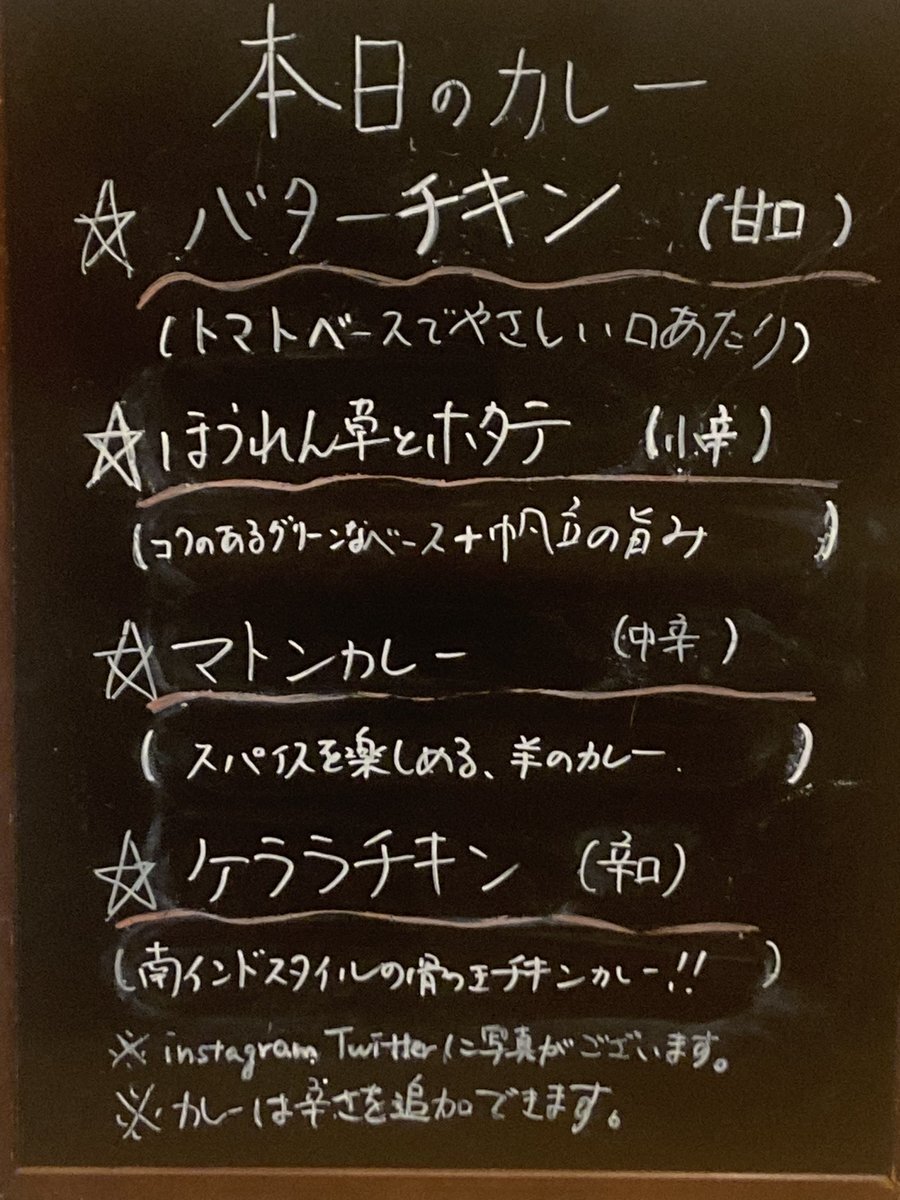 本日のカレー
☆ バターチキン (甘口)
(トマトベースでやさしい口あたり)
☆ ほうれん草とホタテ (小辛)
(コクのあるグリーンなベース+帆立の旨み)
☆ マトンカレー (中辛)
(スパイスを楽しめる、羊のカレー)
☆ ケララチキン (辛口)
(南インドスタイルの骨つきチキンカレー!!)
※ instagram Twitterに写真がございます。
※ カレーは辛さを追加できます。